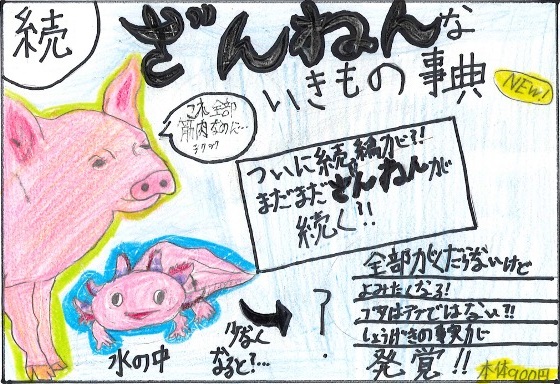 続
ざんねんな
いきもの事典
NEW!
これ全部
筋肉なのに…
ムクッ
ついに続編が?!
まだまだざんねんが
続く!!
水の中
少なく
なると?…
?
全部がくだらないけど
よみたくなる!
ブタはデブではない?!
しょうげきの事実が
発覚!!
本体900円